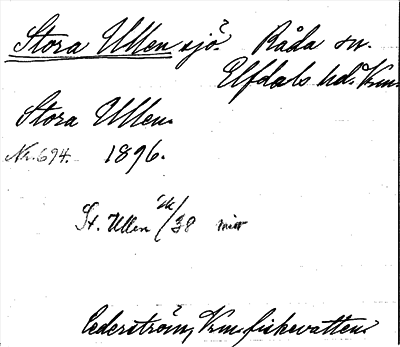 Stora Ullen sjö. Råda sn.
Elfdals hd. Vrm.
Stora Ullen.
Nr. 694. 1896.
St. Ullen 38
Cederström, Vrm. fiskevatten.